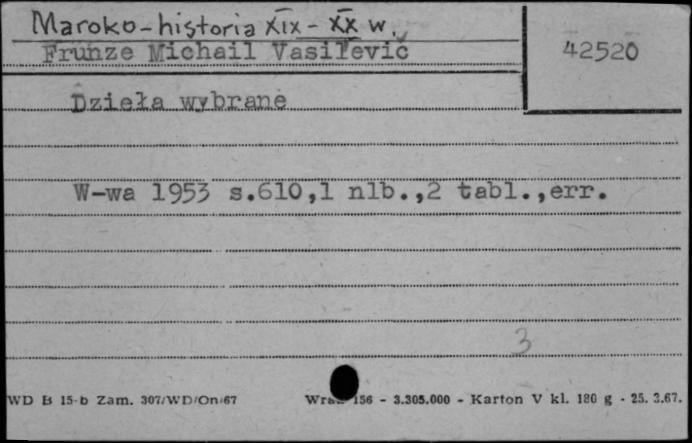 Maroko-historia XIX-XX w.
Frunze Michail Vasil'evič
42520
Dzieła wybrane
W-wa 1953 s.610,1 nlb.,2 tabl.,err.
3
WD B 15-b Zam. 307/WD/On/67 156 - 3.305.000 - Karton V kl. 180 g - 25. 3.67.